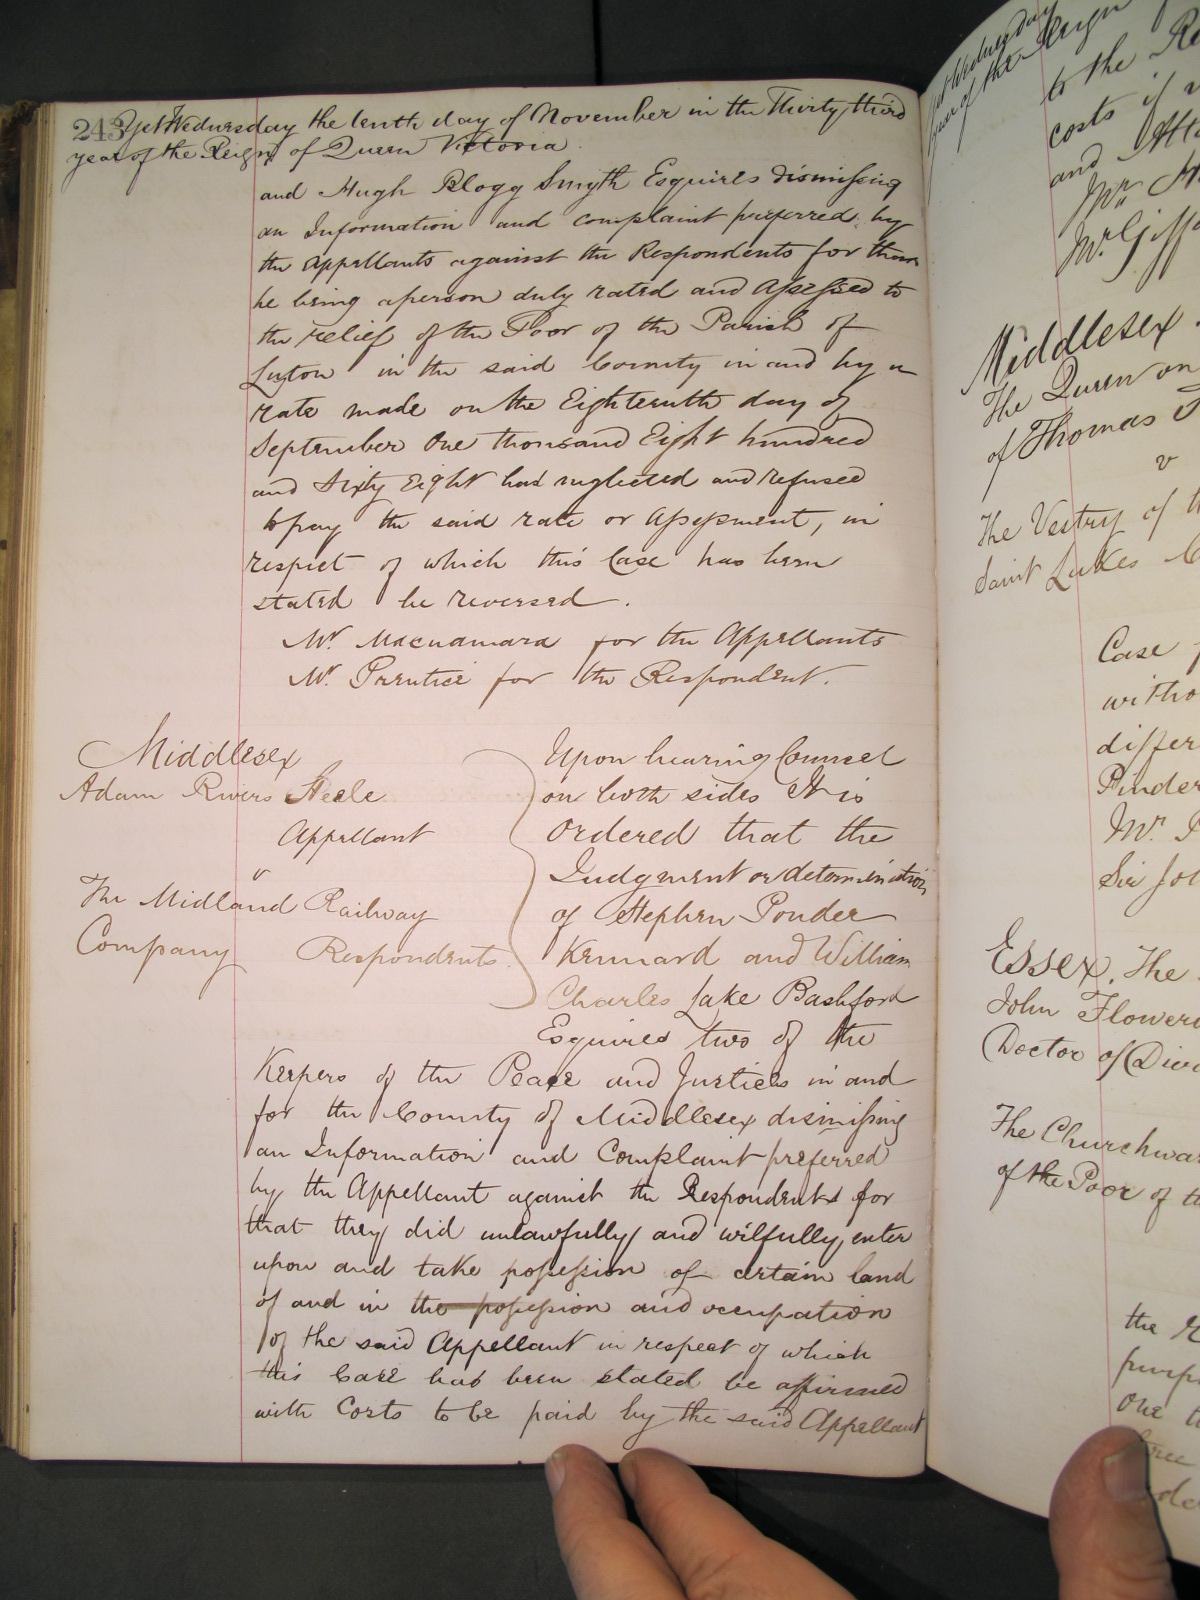 243 Yet Wednesday the tenth day of November in the Thirty third
year of the Reign of Queen Victoria
and Hugh Blogg Smyth Esquires dismissing
an Information and complaint preferred by
the Appellants against the Respondents for that
he being a person duly rated and Assessed to
the relief of the Poor of the Parish of
Luton in the said County in and by a
rate made on the Eighteenth day of
September One thousand Eight hundred
and Sixty Eight had neglected and refused
to pay the said rate or Assessment, in
respect of which this Case has been
stated be reversed.
Mr. Macnamara for the Appellants
Mr. Prentice for the Respondent.
Middlesex
Adam Rivers Steele
Appellant
v
The Midland Railway
Company Respondents
Upon hearing Counsel
on both sides It is
Ordered that the
Judgment or determination
of Stephen Ponder
Kennard and William
Charles Lake Bashford
Esquires two of the
Keepers of the Peace and Justices in and
for the County of Middlesex dismissing
an Information and Complaint preferred
by the Appellant against the Respondents for
that they did unlawfully and wilfully enter
upon and take possession of certain land
of and in the possession and occupation
of the said Appellant in respect of which
this Case has been stated be affirmed
with Costs to be paid by the said Appellant
to the
costs if
and
Mr.
Mr. Giffa
Middlesex
The Queen on
of Thomas
v
The Vestry of th
Saint Lukes
Case
witho
differ
Pinder
Mr.
Sir Joh
Essex. The
John Flower
Doctor of Divi
The Churchwar
of the Poor of th
the
purp
One